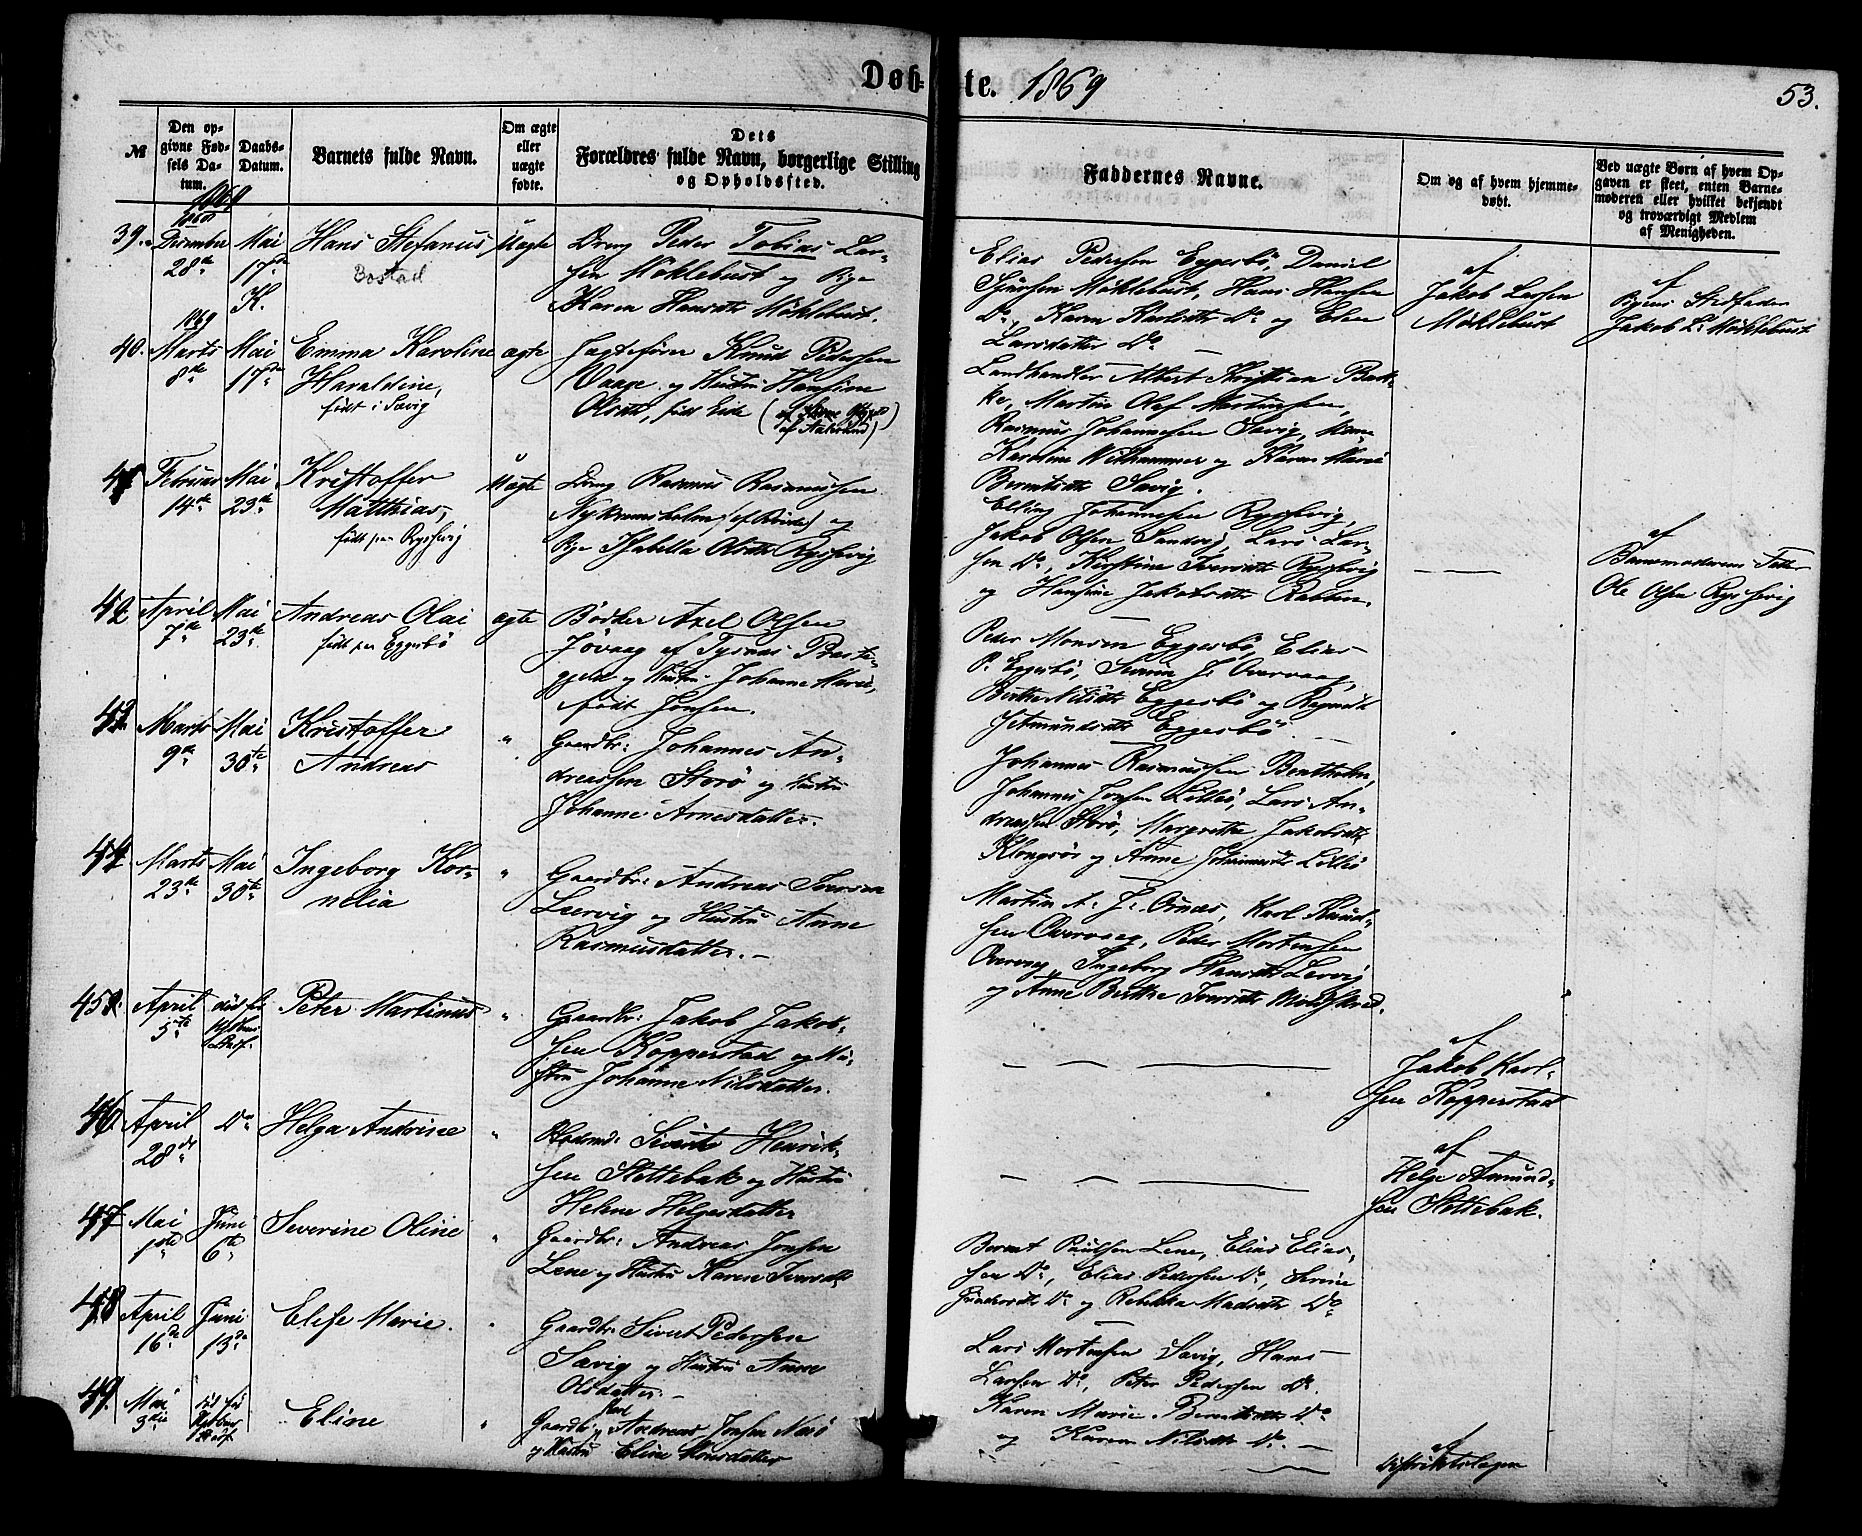 Døb-
te. 1869
53.
№
Den op-
givne Fød-
sels Da-
tum.
Daabs-
Datum.
Barnets fulde Navn.
Om ægte
eller
uægte
fødte.
Dets
Forældres fulde Navn, borgerlige Stilling
og Opholdssted.
Faddernes Navne.
Om og af hvem hjemme-
døbt.
Ved uægte Børn af hvem Op-
gaven er skeet, enten Barne-
moderen eller hvilket bekjendt
og troværdigt Medlem
af Menigheden.
1869
39.
December
28de
Mai
17de
K.
Hans Stefanus
Bostad
Uægte
Dreng Peder Tobias Lar-
sen Møklebust og Pige
Karen Hansdtr Møklebust.
Elias Pedersen Eggesbö, Daniel
Sjursen Møklebust, Hans Hansen
Do, Karen Karlsdtr Do og Elen
Larsdatter Do
af
Jakob Larsen
Møklebust
af
Pigens Stedfader
Jakob L. Møklebust
1869
40.
Marts
8de
Mai
17de
Emma Karoline
Haraldine,
født i Savig
ægte
Jagtefører Knud Pedersen
Vaage og Hustru Hansine
Olsdtr, født Eide
af Aalesund)
Landhandler Albert Kristian Bak-
ke, Martin Olaf Martinsen,
Rasmus Johannesen Savig,
Karoline Withammer og Karen Marie
Berntsdtr Savig.
41
Februar
14de
Mai
23de
Kristoffer
Matthias,
født paa Rypsvig
Uægte
Dreng Rasmus Rasmussen
Nykremsholm, og
Pige Isabella Olsdtr Rypsvig
Elling Johannesen Rypsvig,
Jakob Olsen Sandvig, Lars Lar-
sen Do, Kirstine Iversdtr Rypsvig
og Hansine Jakobsdtr Rabben.
af
Barnemoderens Fader
Ole Olsen Rypsvig
42
April
7de
Mai
23de
Andreas Olai
født paa Eggesbö
ægte
Bödker Axel Olsen
Jövaag af Tysnæs Præste-
gjeld og Hustru Johanne Marie,
født Jonsen.
Peder Monsen Eggesbö, Elias
P. Eggesbö, Severine J. Overvaag,
Berthe Nilsdtr Eggesbö og Ragnild
Jetmundsdtr Eggesbö
43.
Marts
9de
Mai
30te
Kristoffer
Andreas
"
Gaardbr: Johannes An-
dreassen Storö og Hustru
Johanne Arnesdatter.
Johannes Rasmussen Bentholm,
Johannes Jonsen Lillö, Lars An-
dreassen Storö, Margrethe Jakobsdtr
og Anne Lillö
44.
Marts
23de
Mai
30te
Ingeborg Kor-
nelia
"
Gaardbr: Andreas Iversen
Leervig og Hustru Anne
Rasmusdatter.
Martin A. J. Ornæs, Karl Knud-
sen Overvaag, Peder Mortensen
Overvaag, Ingeborg Hansdtr Lervig
og Anne Berthe Iversdtr
45.
April
5te
död för
Peter Martinus
"
Gaardbr: Jakob Jakob-
sen Kopperstad og Hu-
stru Johanne Nilsdatter.
af
Jakob Karl-
sen Kopperstad
46.
April
28de
Do
Helga Andrine
"
Sivert Henrik-
sen Stettebak og Hustru
Helene Helgesdatter
af
Helge Amund-
sen Stettebak.
47.
Mai
1ste
Juni
6te
Severine Oline
"
Gaardbr: Andreas Jonsen
Lene og Hustru Karen Iversdtr
Bernt Paulsen Lene, Elias Elias-
sen Do, Elias Pedersen Do, Serine
Do og Rebekka Madsdtr Do
48
April
16de
Juni
13de
Elise Marie.
"
Gaardbr: Sivert Pedersen
Savig og Hustru Anne
Olsdatter.
Lars Mortensen Savig, Hans
Larsen Do, Peter Pedersen Do
Karen Marie Berntsdtr Do
og Karen Nilsdtr Do.
49.
Mai
3die
död för
Eline
"
Gaardbr: Andreas Jonsen Nærö
og Hustru Eline Monsdatter
af
Distriktslægen